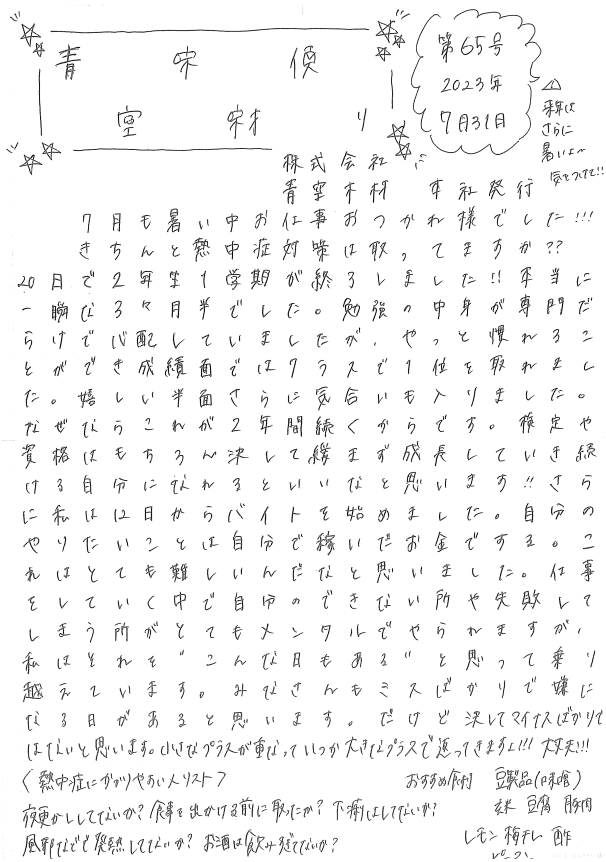 青空
第65号
2023年
7月31日
来年は
さらに
暑いよ〜
気をつけて!!
株式会社
青空木材 本社発行
7月も暑い中お仕事おつかれ様でした!!!
きちんと熱中症対策は取ってますか??
20日で2年生1学期が終了しました!!本当に
一瞬な3ヶ月半でした。勉強の中身が専門だ
らけで心配していましたが、やっと慣れるこ
とができ成績面ではクラスで1位を取れまし
た。嬉しい半面さらに気合いも入りました。
なぜならこれが2年間続くからです。検定や
資格はもちろん決して緩まず成長していき続
ける自分になれるといいなと思います!!さら
に私は12日からバイトを始めました。自分の
やりたいことは自分で稼いだお金でする。こ
れはとても難しいんだなと思いました。仕事
をしていく中で自分のできない所や失敗して
しまう所がとてもメンタルでやられますが、
私はそれを"こんな日もある"と思って乗り
越えています。みなさんもミスばかりで嫌に
なる日があると思います。だけど決してマイナスばかりで
はないと思います。小さなプラスが重なっていつか大きなプラスで返ってきますよ!!!大丈夫!!!
〈熱中症にかかりやすい人リスト〉
夜更かししてないか?食事を出かける前に取ったか?下痢はしてないか?
風邪などで発熱してないか?お酒は飲みすぎてないか?
おすすめ食材 豆製品(味噌)
玄米 豆腐 豚肉
レモン 梅干し 酢